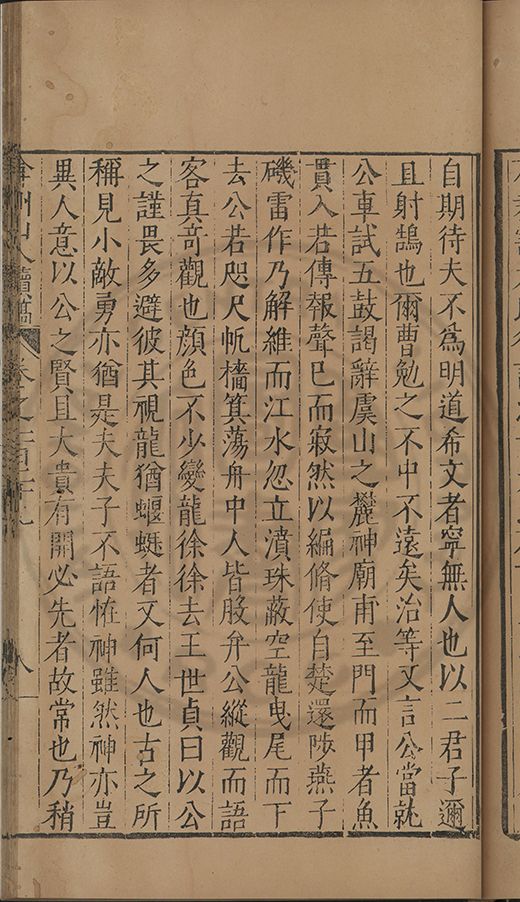 自期待夫不為明道希文者寧無人也以二君子邇
且射鵠也爾曹勉之不中不遠矣治等又言公當就
公車試五鼓謁辭虞山之麓神廟甫至門而甲者魚
貫入若傳報聲已而寂然以編脩使自楚還陟燕子
磯雷作乃解維而江水忽立濆珠蔽空龍曳尾而下
去公若咫尺帆檣箕蕩舟中人皆股弁公縱觀而語
客真奇觀也顏色不少變龍徐徐去王世貞曰以公
之謹畏多避彼其視龍猶蝘蜓者又何人也古之所
稱見小敵勇亦猶是夫夫子不語恠神雖然神亦豈
異人意以公之賢且大貴有開必先者故常也乃稍
弇州山人續稿 卷之一百
八